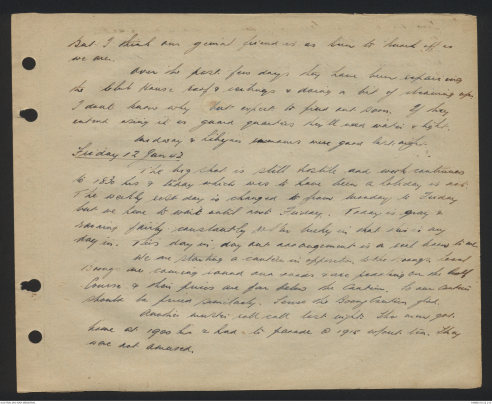 But I think our genial friend is as keen to knock off as
we are.
Over the past few days they have been repairing
the Club House roof & ceilings & doing a bit of cleaning up.
I don't know why but expect to find out soon. If they
intend using it as guard quarters they'll need water & light.
& Libyan were good last night.
Friday 12 Jan 43
The big shot is still hostile and work continues
to 1830 hrs & today which was to have been a holiday is not.
The weekly rest day is changed to from Monday to Friday
but we have to work until next Friday. Today is grey &
raining fairly constantly but in that this is my
day in. This day in day out arrangement is a to me.
We are starting a canteen in opposition to the local
Boong are coming round and are on the Golf
Course & their prices are far below the Canteen. So our canteen
should be priced similarly. Since the Boong Canteen
Another roll call last night. The men got
home at 1900 hrs & had to parade @ 1915 without tea. They
were not amused.